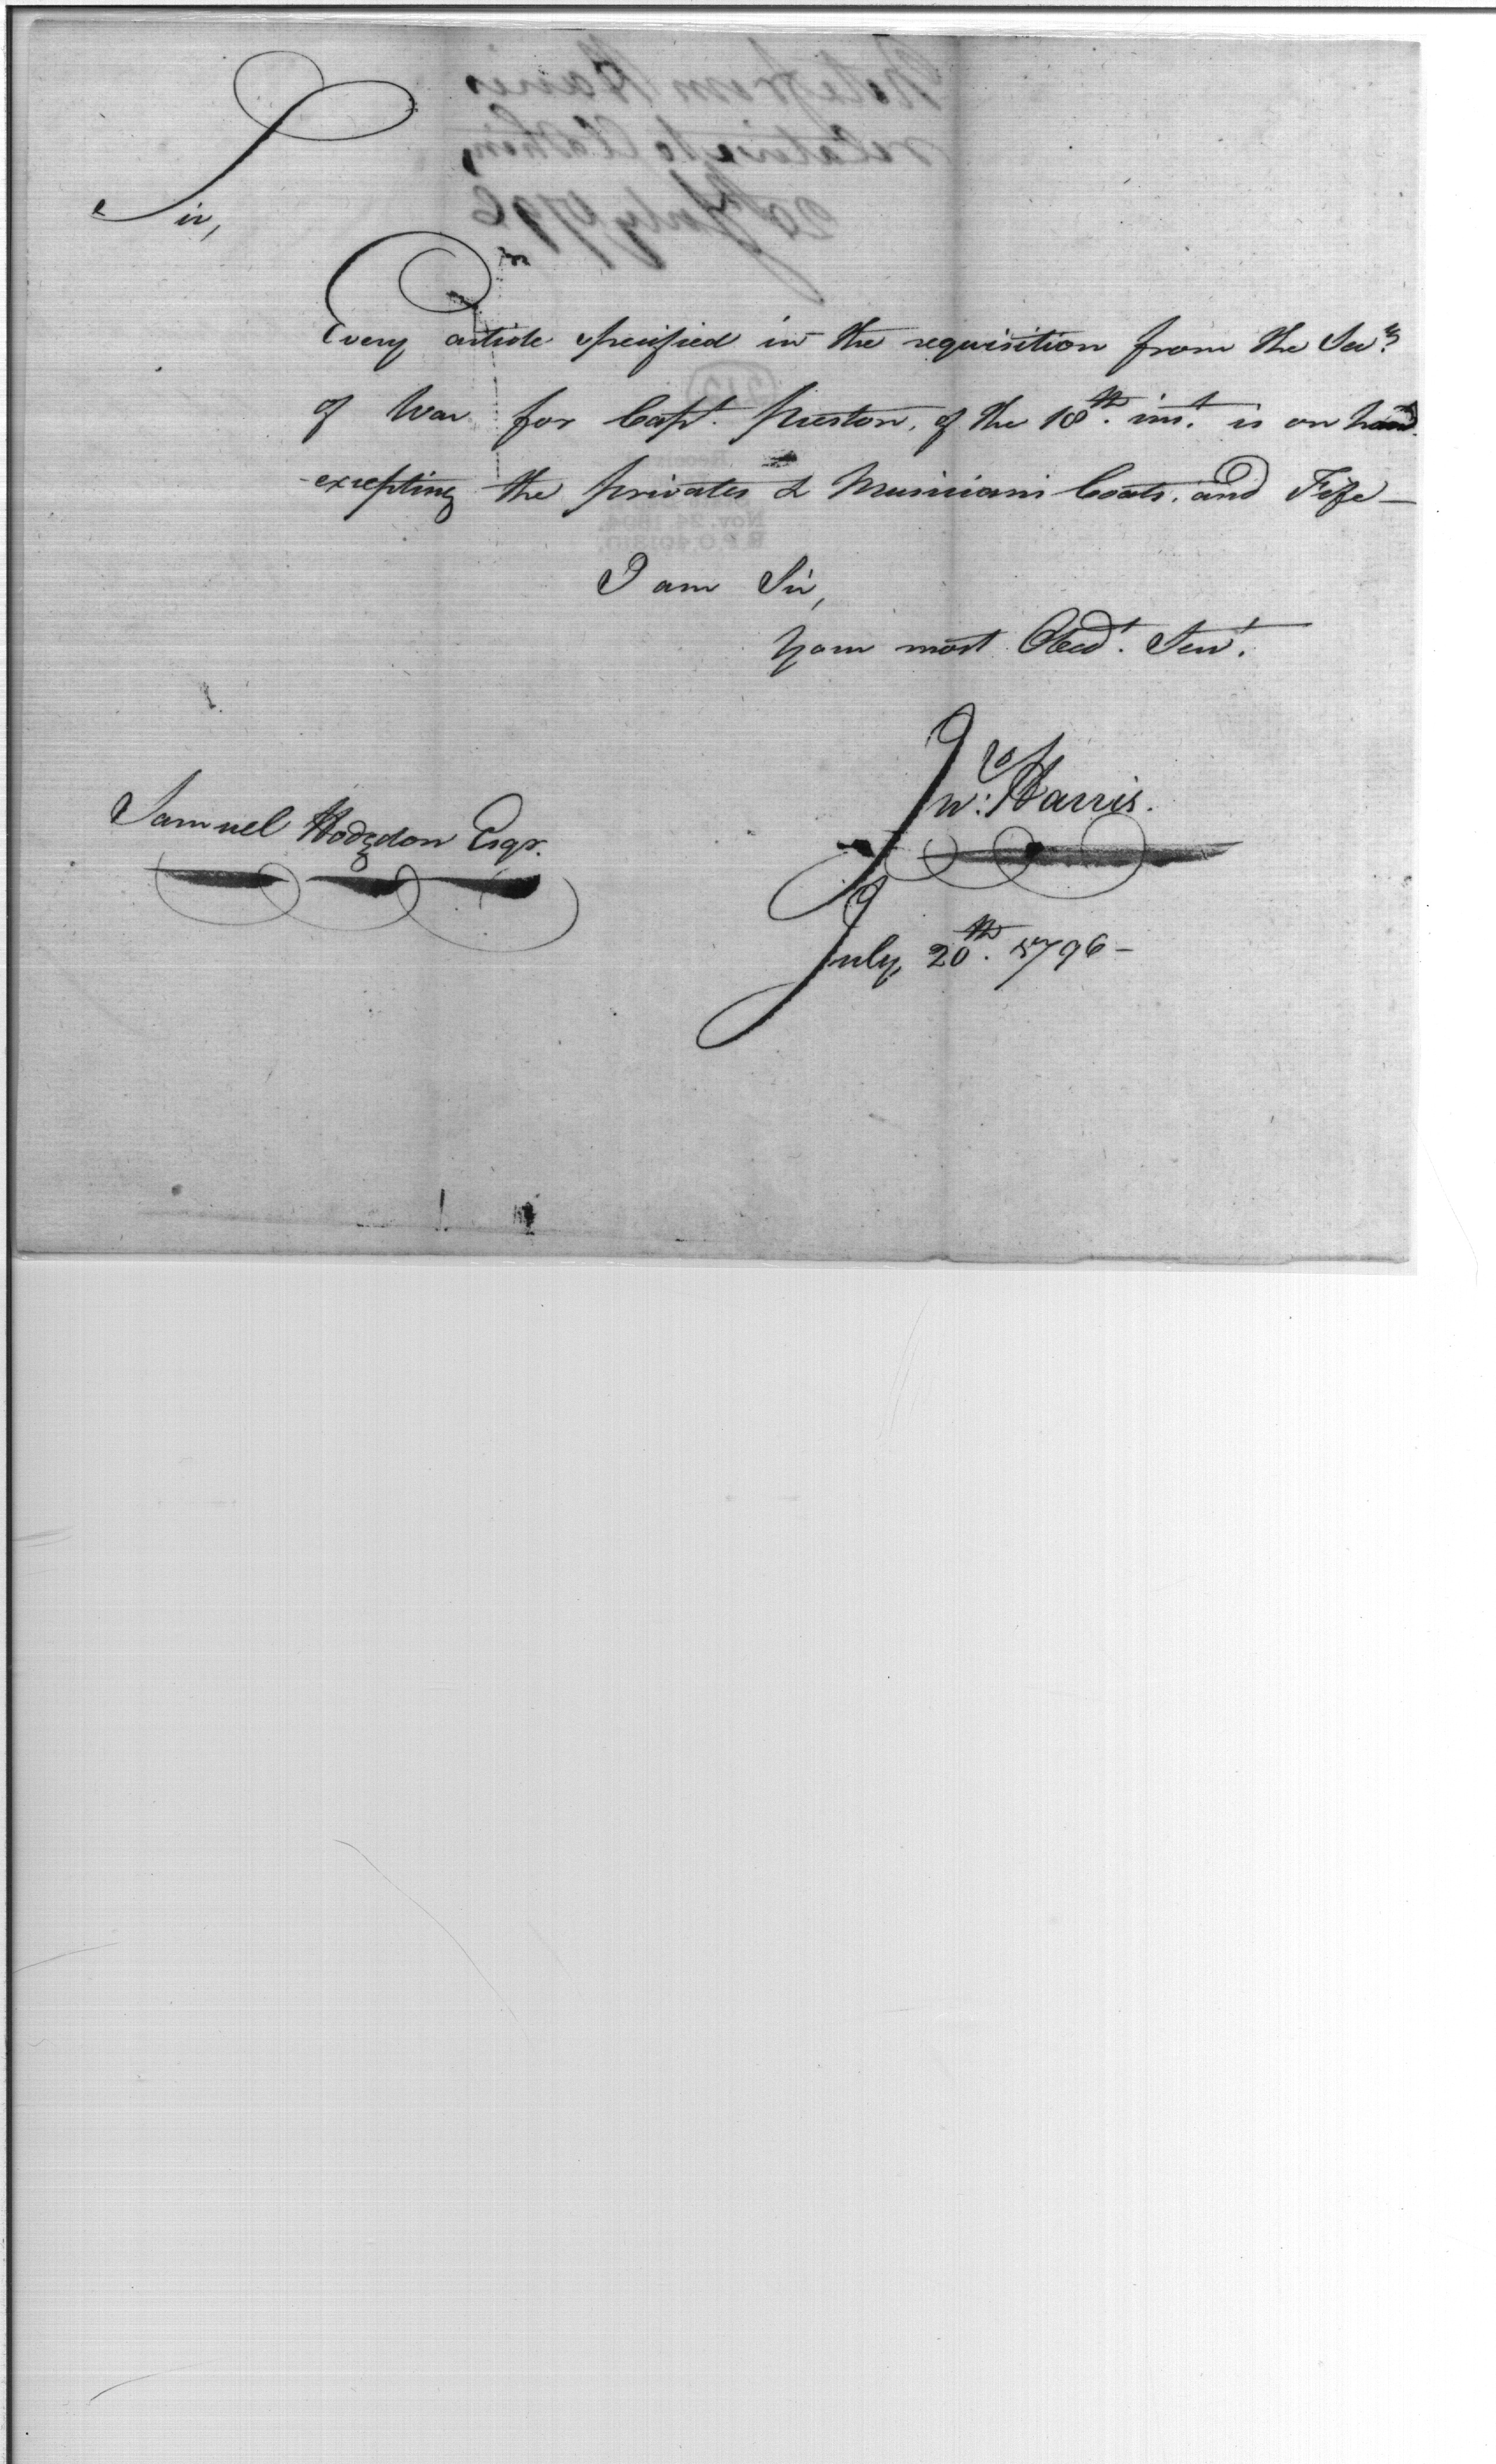 Sir,
Every article specified in the requisition from the Secy.
of War for Capt. Preston, of the 18th. inst. is on hand
excepting the privates & Musicians Coats, and Fife—
I am Sir,
Your most Obedt. Servt.
Jno: Harris.
Samuel Hodgdon Esqr.
July, 20th. 1796—
Note from Harris
relative to Clothing
20th July 1796